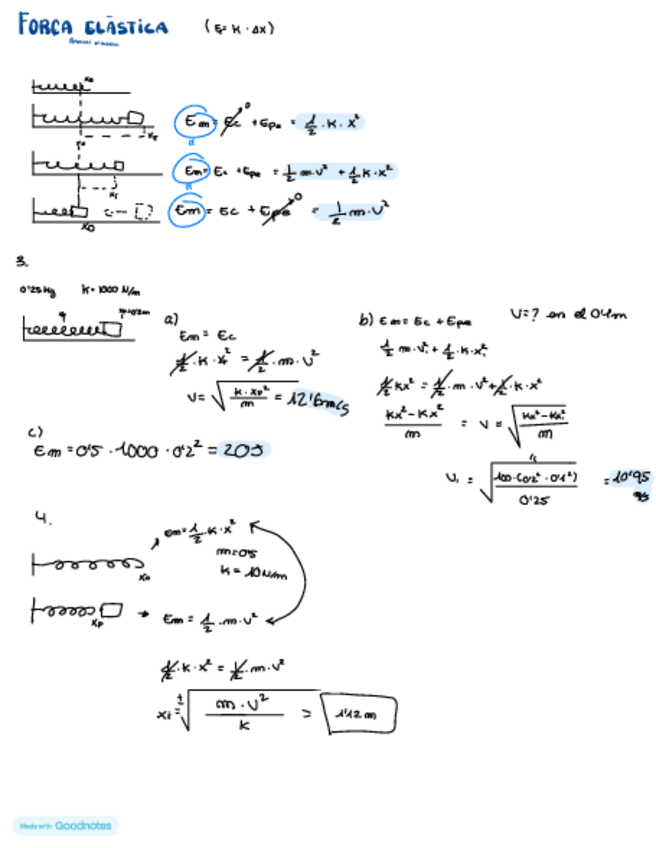 FORÇA ELÀSTICA (F= K · Δx)
x0
Em = Ec + Epe = 1/2 · K · x²
x0
Em = Ec + Epe = 1/2 m·v² + 1/2 K·x²
Em = Ec + Epe = 1/2 m·v²
x0
3.
0'25 Kg K = 1000 N/m
a)
Em = Ec
1/2 · K · x² = 1/2 · m · v²
v = √(K · x² / m) = 12'6 m/s
b) Em = Ec + Epe v = ? en el 0'1 m
1/2 m · v² + 1/2 · K · x²
1/2 Kx² = 1/2 · m · v² + 1/2 · K · x²
Kx² - Kx² / m = v = √(Kx² - Kx² / m)
v = √(100 · (0'2² · 0'1²) / 0'25) = 10'95
c)
Em = 0'5 · 1000 · 0'2² = 20J
4.
Em = 1/2 · K · x²
m = 0'5
K = 10 N/m
x0
Em = 1/2 · m · v²
1/2 · K · x² = 1/2 · m · v²
= ±√(m · v² / K) = 1'12 m
Made with Goodnotes